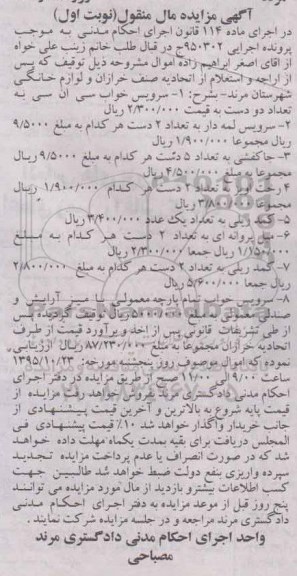 آگهی مزایده مال منقول(نوبت اول)
در اجرای ماده ۱۱۴ قانون اجرای احکام مدنی به موجب
پرونده اجرایی ۹۵۰۳۰۲ح در قبال طلب خانم زینب علی خواه
از اقای اصغر ابراهیم زاده اموال مشروحه ذیل توقیف که پس
از ارجاع و استعلام از اتحادیه صنف خرازان و لوازم خانگی
شهرستان مرند- بشرح: ۱- سرویس خواب سی ان سی به
تعداد دو دست به قیمت ۲/۳۰۰/۰۰۰ ریال
۲- سرویس لمه دار به تعداد ۲ دست هر کدام به مبلغ ۹/۵۰۰۰
ریال مجموعا ۱/۹۰۰/۰۰۰ ریال
۳- جاکفشی به تعداد ۵ دست هر کدام به مبلغ ۹/۵۰۰۰ ریال
مجموعا به مبلغ ۴/۵۰۰/۰۰۰ ریال
۴ رخت اویز به تعداد ۲ دست هر کدام ۱/۹۰۰/۰۰۰ ریال
مجموعا ۳/۸۰۰/۰۰۰ ریال
۵- کمد ریلی به تعداد یک عدد ۳/۴۰۰/۰۰۰ ریال
۶- مبل پروانه ای به تعداد ۲ دست هر کدام به مبلغ
۱/۱۵۰/۰۰۰ ریال جمعا ۲/۳۰۰/۰۰۰ ریال
۷- کمد ریلی به تعداد ۲ دست هر کدام به مبلغ ۲/۸۰۰/۰۰۰
ریال جمعا ۵/۶۰۰/۰۰۰ ریال
۸- سرویس خواب تمام پارچه معمولی با میز آرایش و
صندلی معمولی به ارزش ریال توقیف گردید پس
از طی تشریفات قانونی پس از اخذ و برآورد قیمت از طرف
اتحادیه خرازان مجموعا به مبلغ ۸۷/۲۳۰/۰۰۰ ریال ارزیابی
نموده که اموال موصوف روز پنجشنبه مورخه: ۱۳۹۵/۱۰/۲۳
ساعت ۹/۰۰ الی ۱۱/۰۰ صبح از طریق مزایده در دفتر اجرای
احکام مدنی دادگستری مرند بفروش خواهد رفت مزایده از
قیمت پایه شروع به بالاترین و آخرین قیمت پیشنهادی از
جانب خریدار واگذار خواهد شد ۱۰٪ قیمت پیشنهادی فی
المجلس دریافت برای بقیه بمدت یکماه مهلت داده خواهد
شد که در صورت انصراف یا عدم پرداخت مزایده تجدید
سپرده واریزی بنفع دولت ضبط خواهد شد طالبین جهت
کسب اطلاعات بیشتر و بازدید از مال مورد مزایده می توانند
پنج روز قبل از موعد مزایده به دفتر اجرای احکام مدنی
دادگستری مرند مراجعه و در جلسه مزایده شرکت نمایند .
واحد اجرای احکام مدنی دادگستری مرند
مصباحی